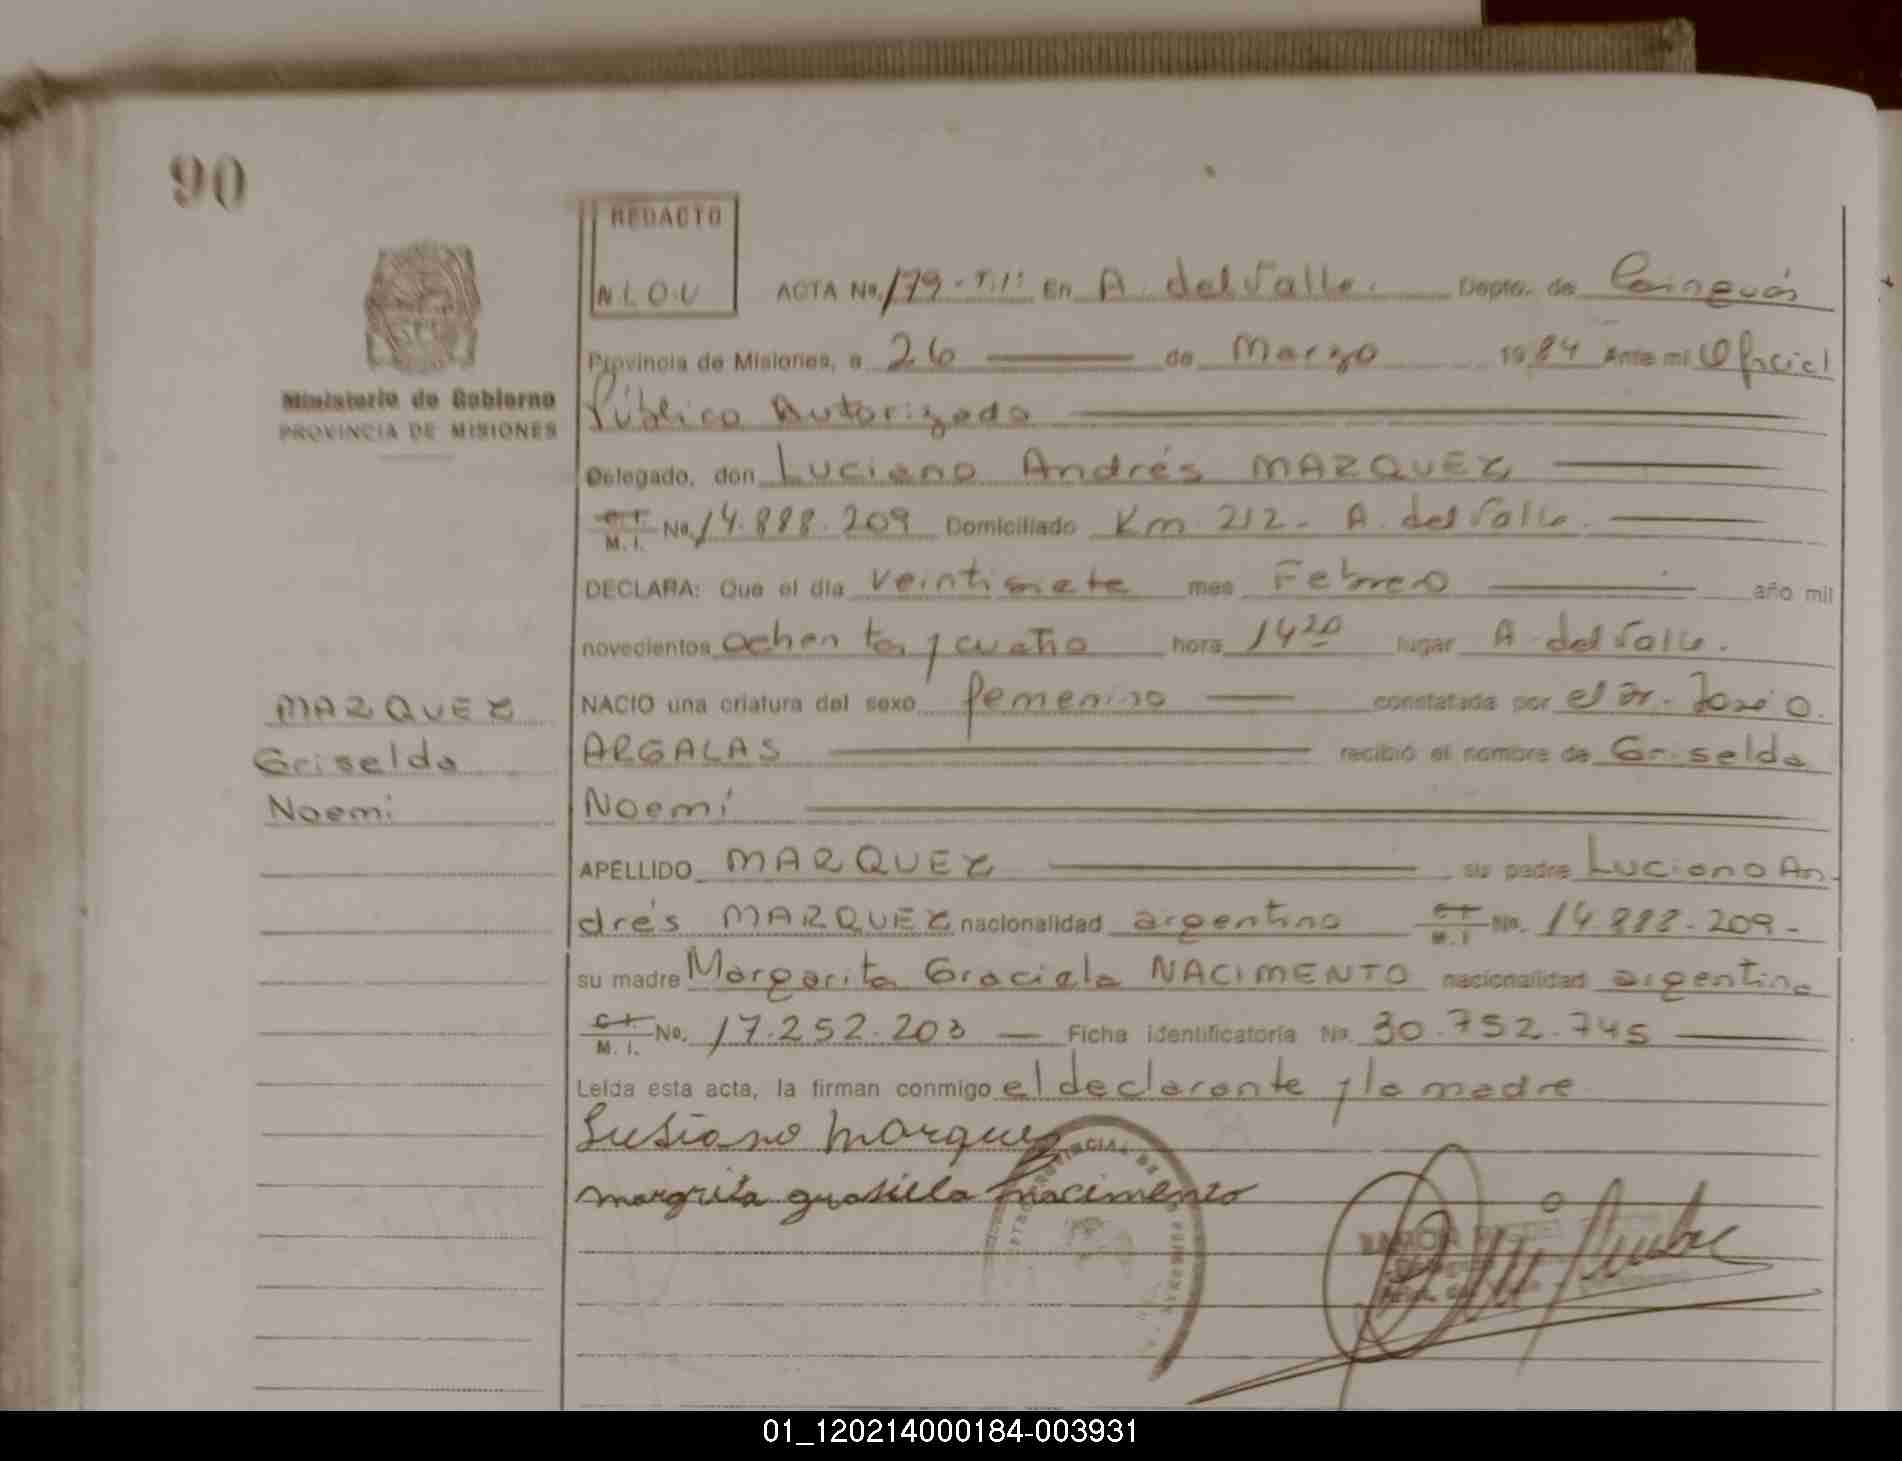 90
REDACTO
N.L.O.V
ACTA No. 179 - T.I: En A. del Valle. Depto. de Cainguás
Provincia de Misiones, a 26 de Marzo 1984 Ante mi Oficial
Ministerio de Gobierno
PROVINCIA DE MISIONES
Público Autorizado
Delegado, don Luciano Andrés MARQUEZ
C.I. M. I. No. 14.888.209 Domiciliado Km 212 - A. del Valle.
DECLARA: Que el día veintisiete mes Febrero año mil
novecientos ochenta y cuatro hora 14 20 lugar A. del Valle.
MARQUEZ
Griselda
Noemi
NACIO una criatura del sexo femenino constatada por el Dr. José O.
ARGALAS recibió el nombre de Griselda
Noemí
APELLIDO MARQUEZ su padre Luciano An-
drés MARQUEZ nacionalidad argentina C.I. M.I No. 14.888.209 -
su madre Margarita Graciela NACIMENTO nacionalidad argentina
C.I. M. I. No. 17.252.203 Ficha identificatoria No. 30.752.745
Leída esta acta, la firman conmigo el declarante y la madre
Lusiano Marquez
margrita grasiela nacimento
01_120214000184-003931